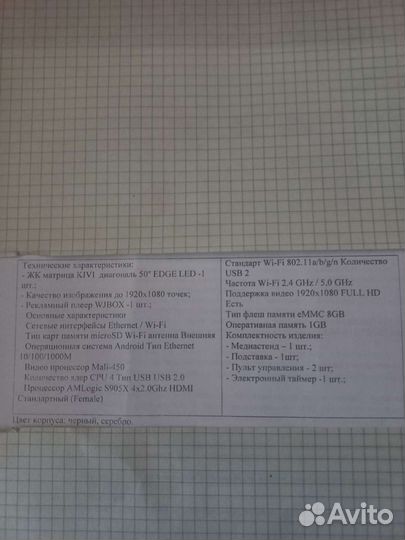 Технические характеристики:
- ЖК матрица KIVI диагональ 50" EDGE LED -1
шт.;
- Качество изображения до 1920x1080 точек;
- Рекламный плеер WJBOX -1 шт.;
Основные характеристики
Сетевые интерфейсы Ethernet / Wi-Fi
Тип карт памяти microSD Wi-Fi антенна Внешняя
Операционная система Android Тип Ethernet
10/100/1000M
Видео процессор Mali-450
Количество ядер CPU 4 Тип USB USB 2.0
Процессор AMLogic S905X 4x2.0Ghz HDMI
Стандартный (Female)
Стандарт Wi-Fi 802.11a/b/g/n Количество
USB 2
Частота Wi-Fi 2.4 GHz / 5.0 GHz
Поддержка видео 1920x1080 FULL HD
Есть
Тип флеш памяти eMMC 8GB
Оперативная память 1GB
Комплектность изделия:
- Медиастенд – 1 шт.;
- Подставка - 1шт;
- Пульт управления - 2 шт;
- Электронный таймер -1 шт.;
Цвет корпуса: черный, серебро.
Avito